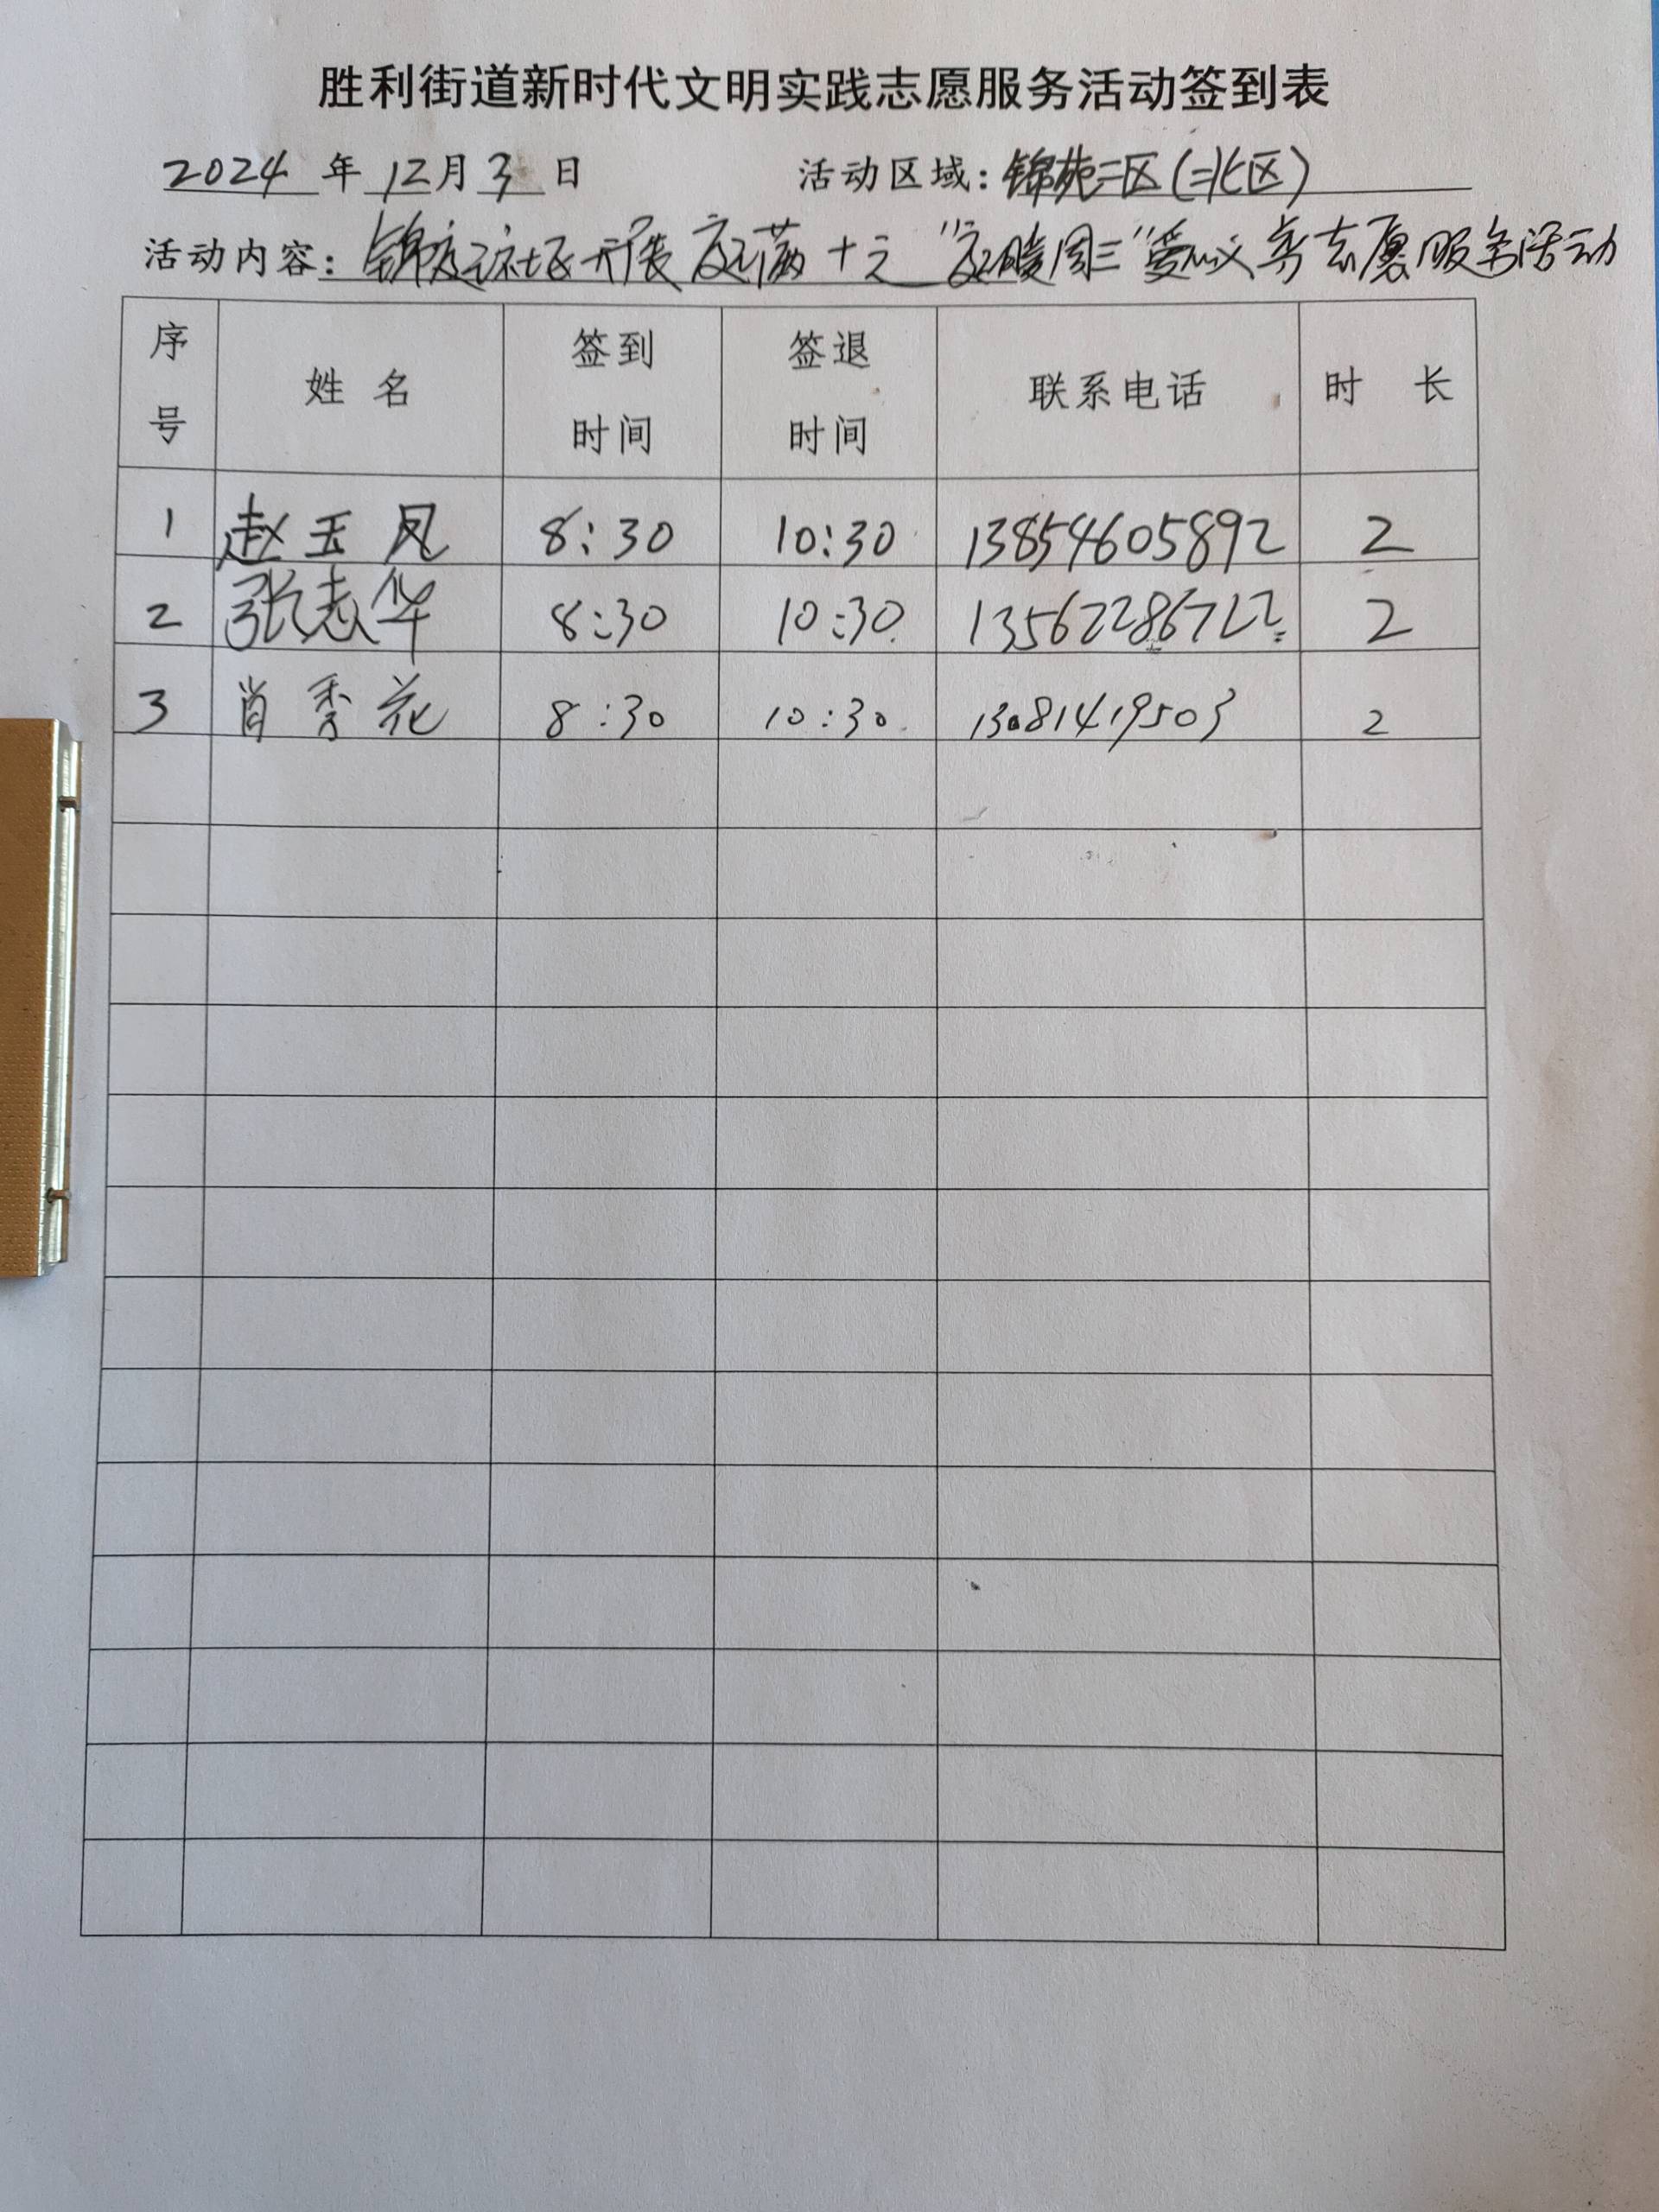 胜利街道新时代文明实践志愿服务活动签到表
2024 年 12月 3 日 活动区域：锦苑三区(三北区)
活动内容：锦庭社区开展庭满十元“庭暖周三”爱心义剪志愿服务活动
序号 姓名 签到时间 签退时间 联系电话 时 长
1 赵玉凤 8:30 10:30 13854605892 2
2 张志华 8:30 10:30 2
3 肖秀花 8:30 10:30 13081419503 2